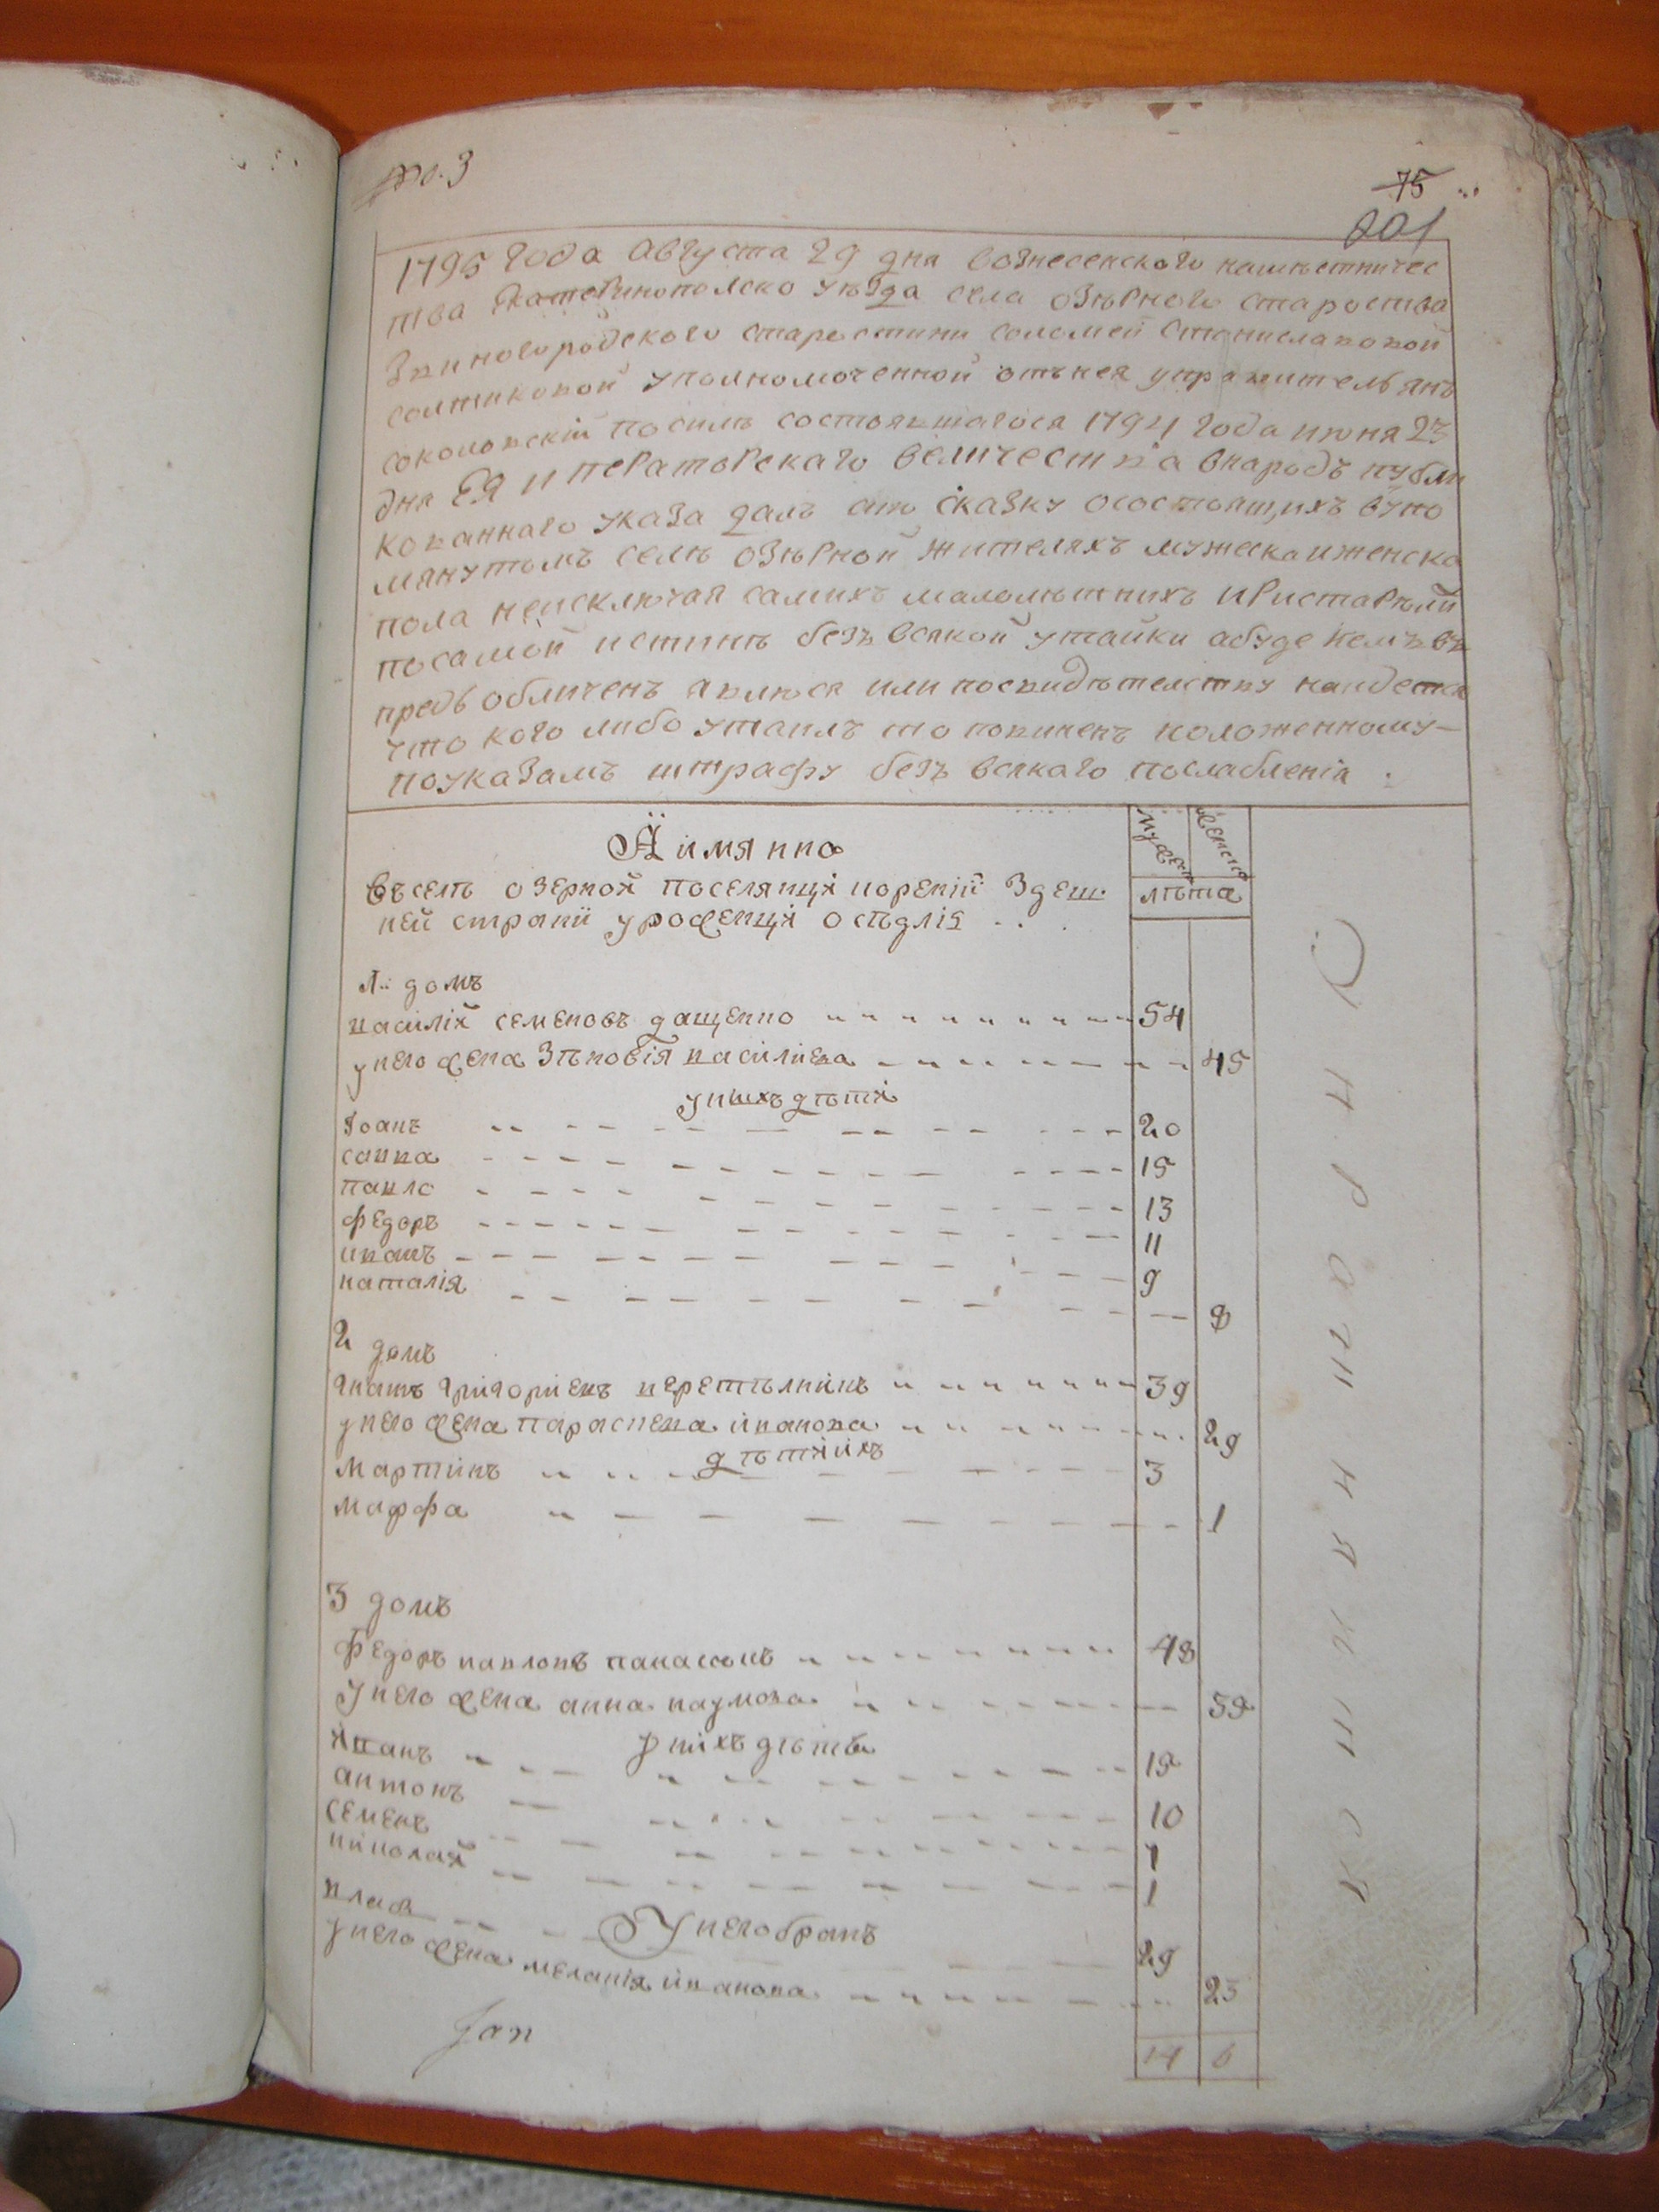 75
201
1795 года Августа 29 дня вознесенского намѣстничес
тва Екатеринополско уѣзда села озѣрного староства
Звиногородского старостини соломеи Станиславовой
солтиковой уполномоченной отънея управитель янъ
соколовскій посилѣ состоявшагося 1794 года июня 23
дня ЕЯ иператорскаго величества внародъ публи
кованнаго указа далъ сию сказку осостоящихъ вупо
мянутомъ селѣ озѣрной жителяхъ мужеска иженска
пола неисключая самихъ малолѣтнихъ ипристарѣли
посамой истинѣ безъ всякой утайки абуде кемъ вв
предь обличенъ явлюся или посвидѣтелству найдется
что кого либо утаилъ то повиненъ положенному
поуказамъ штрафу безъ всякаго послабленія
А имянно
въселѣ озерной поселянця корений здеш
ней страни уроженця оседлія
мужеск женска
лѣта
1 домъ
василій семеновъ дащенко 54
унего жена зѣновія василиева 45
унихъ дѣти
Іоанъ 20
савка 15
павло 13
федоръ 11
иванъ 9
наталія 8
2 домъ
игнатъ григориевъ перетѣлникъ 39
унего жена параскева иванова 29
дѣти ихъ
мартинъ 3
марфа 1
3 домъ
Федоръ павловъ панасюкъ 48
унего жена анна наумова 39
унихъ дѣти
Иванъ 15
антонъ 10
семенъ 7
николай 1
унего братъ
власъ 29
унего жена меланія иванова 23
14 6
Jan